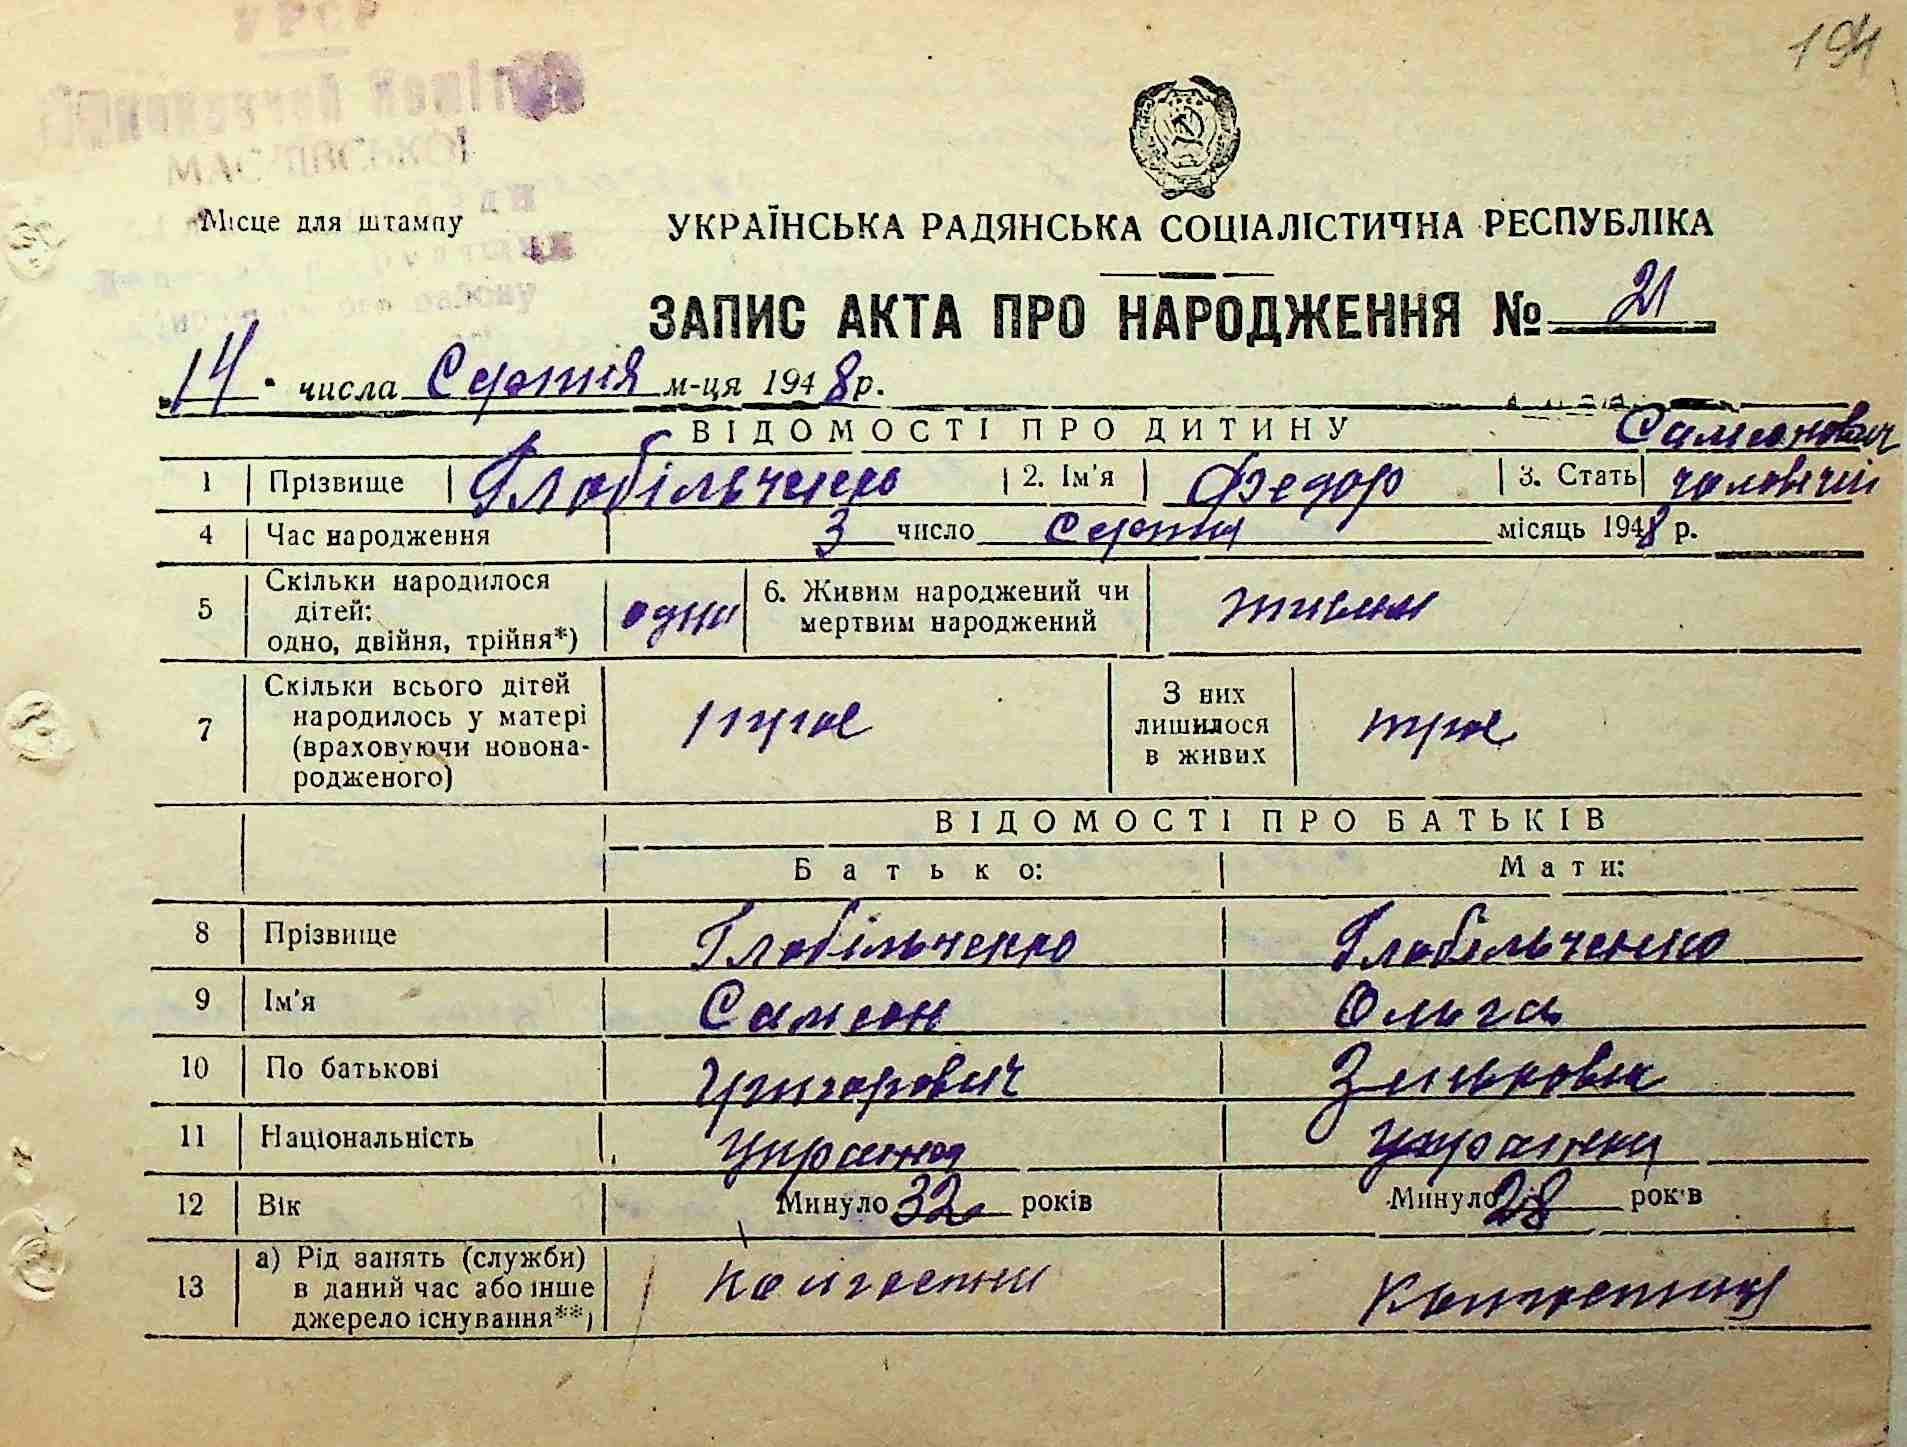 194
УРСР
Виконавчий Коміт
МАС ІВСЬКОЇ
району
Місце для штампу
УКРАЇНСЬКА РАДЯНСЬКА СОЦІАЛІСТИЧНА РЕСПУБЛІКА
ЗАПИС АКТА ПРО НАРОДЖЕННЯ № 21
14 числа Серпня м-ця 1948 р.
ВІДОМОСТІ ПРО ДИТИНУ
Самсонович
1 Прізвище Глабільченко 2. Ім'я Федор 3. Стать чоловічий
4 Час народження 3 число Серпня місяць 1948 р.
5 Скільки народилося дітей: одно, двійня, трійня*) одно 6. Живим народжений чи мертвим народжений живим
7 Скільки всього дітей народилось у матері (враховуючи новонародженого) троє З них лишилося в живих троє
ВІДОМОСТІ ПРО БАТЬКІВ
Батько: Мати:
8 Прізвище Глабільченко Глабільченко
9 Ім'я Самсон Ольга
10 По батькові Григорович Зиньковна
11 Національність українец українка
12 Вік Минуло 32 років Минуло 28 рок в
13 а) Рід занять (служби) в даний час або інше джерело існування**) колгоспник колгоспниця